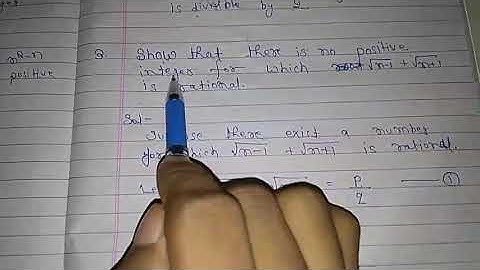 is divisible by 2
n²-n
positive
Q. Show that there is no positive
integer for which √n-1 + √n+1
is rational.
Sol-
there exist a number
which √n-1 + √n+1 is rational.
= p/q — ①